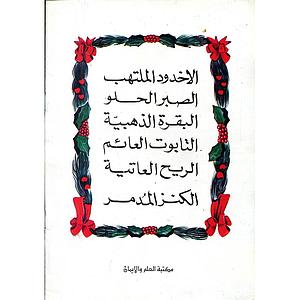 الاخدود الملتهب
الصبر الحلو
البقرة الذهبيّة
التابوت العائم
الريح العاتية
الكنز المدمر
مكتبة العلم والإيمان